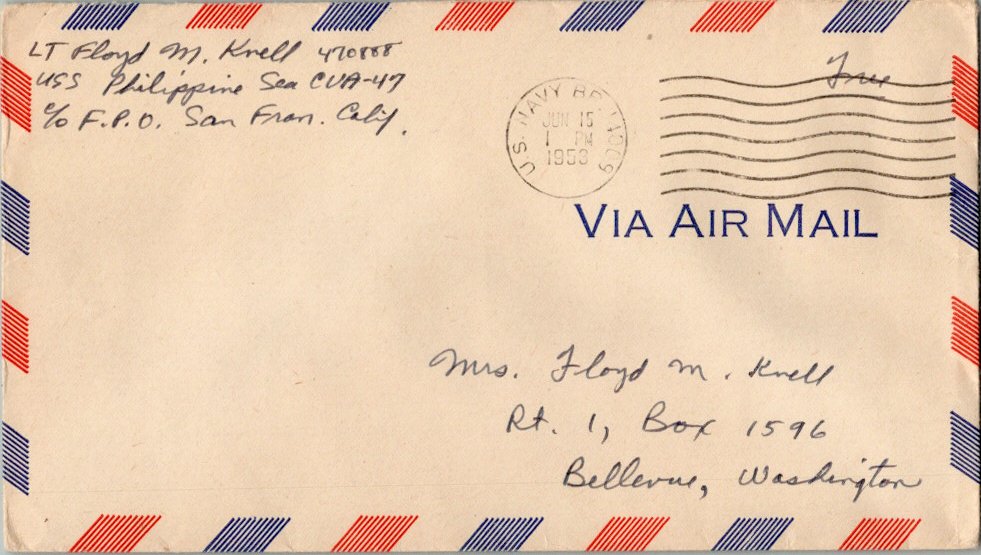 LT Floyd M. Knell 470888
USS Philippine Sea CVA-47
c/o F.P.O. San Fran. Calif.
Free
U.S. NAVY BR. 14009
JUN 15
1 PM
1953
VIA AIR MAIL
Mrs. Floyd M. Knell
Rt. 1, Box 1596
Bellevue, Washington